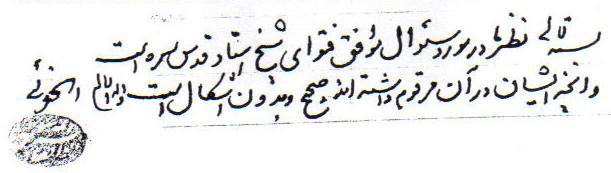 بسمه تعالی نظر ما در مورد سئوال موافق فتوای شیخ استاد قدس سره است
و آنچه ایشان در آن مرقوم داشته اند صحیح و بدون اشکال است والله العالم الخوئی